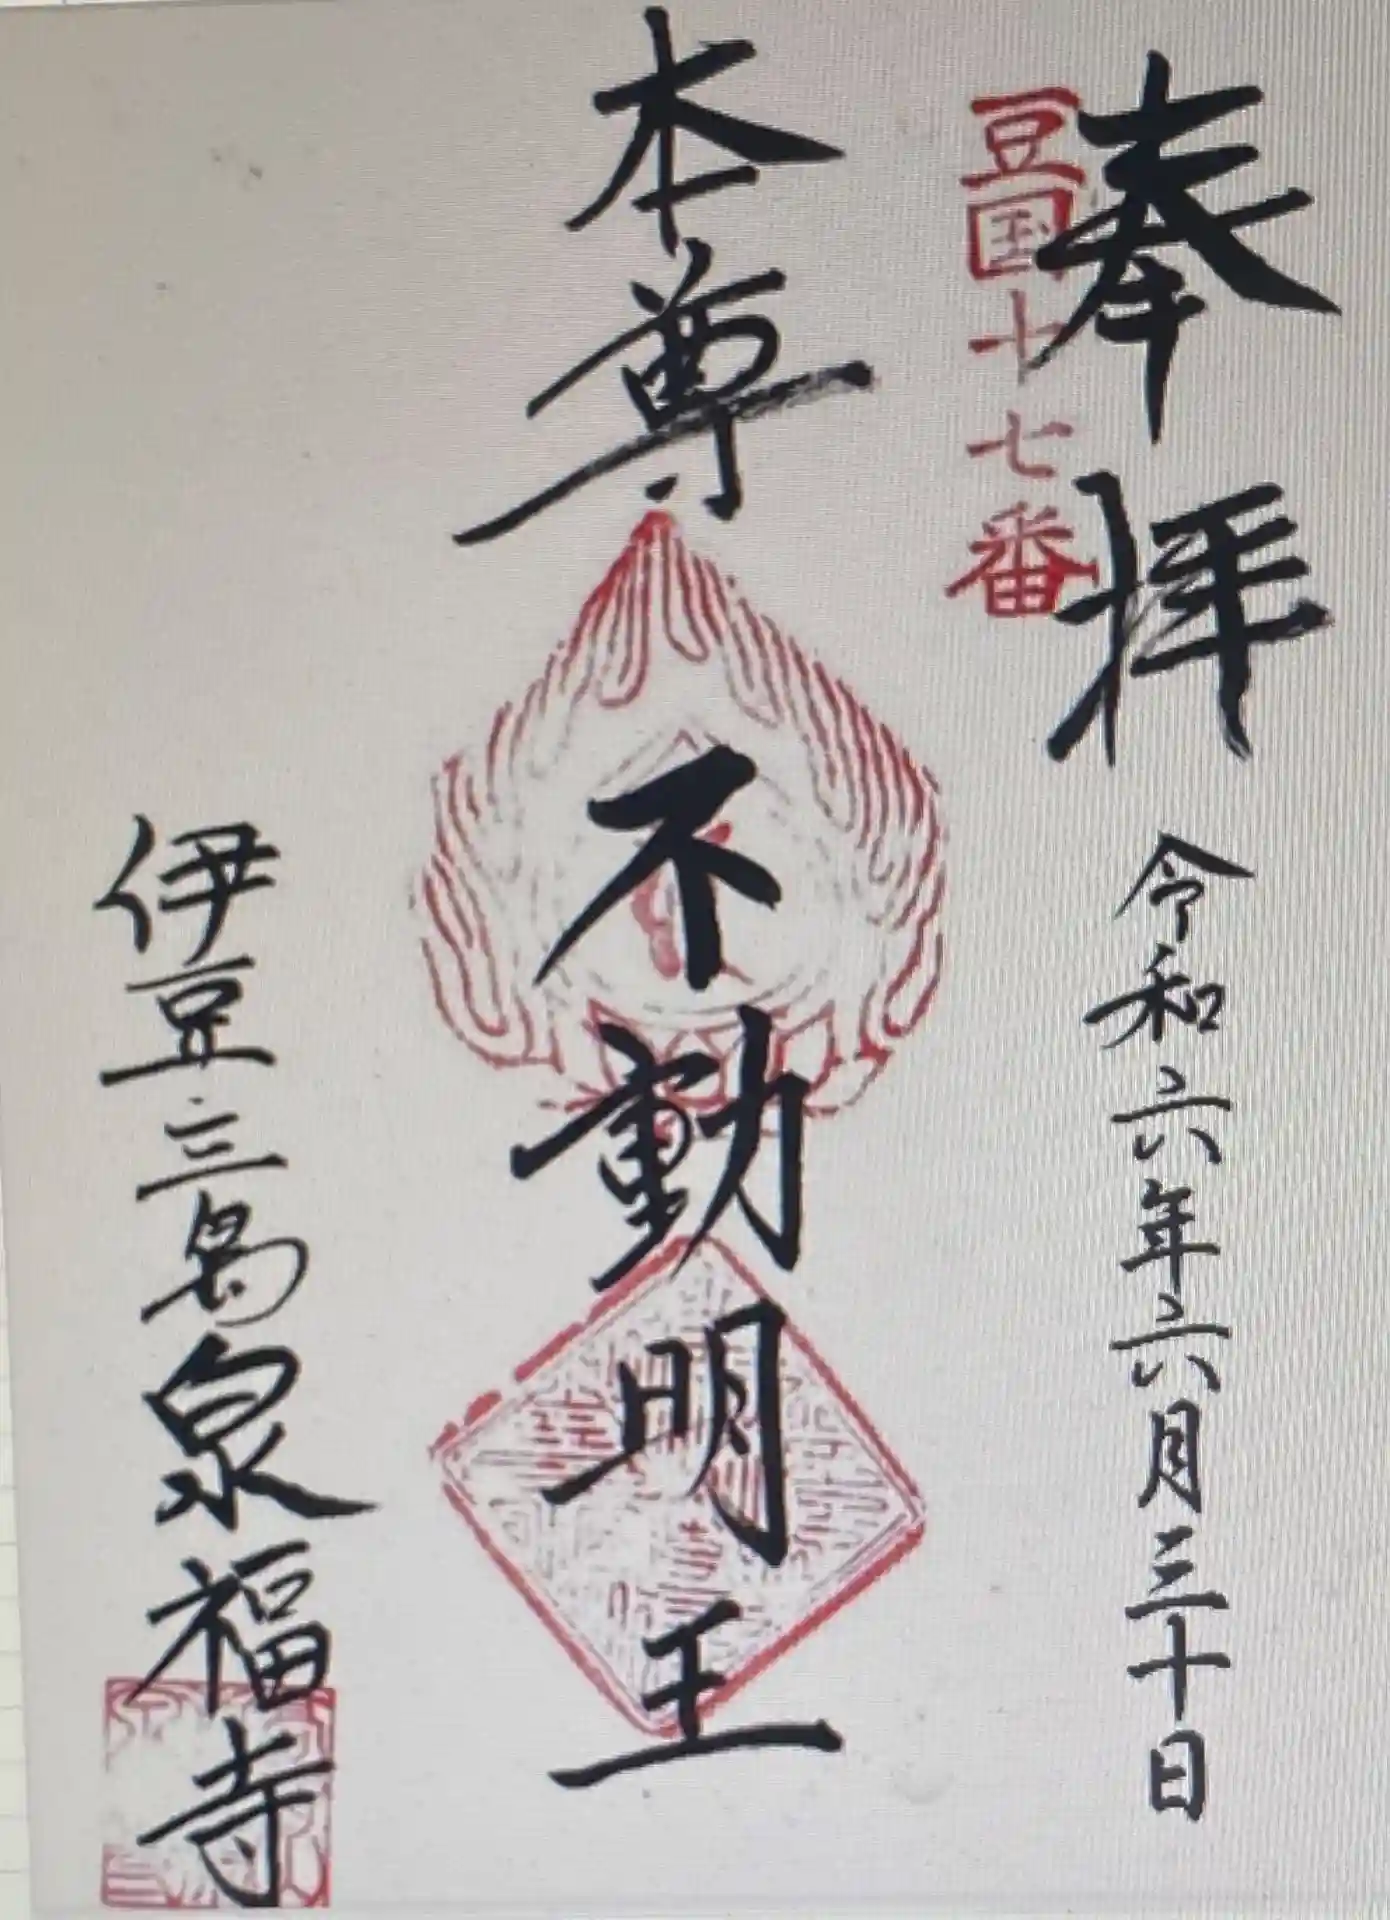 奉拝
令和六年六月三十日
豆国十七番
本尊
不動明王
伊豆三島泉福寺